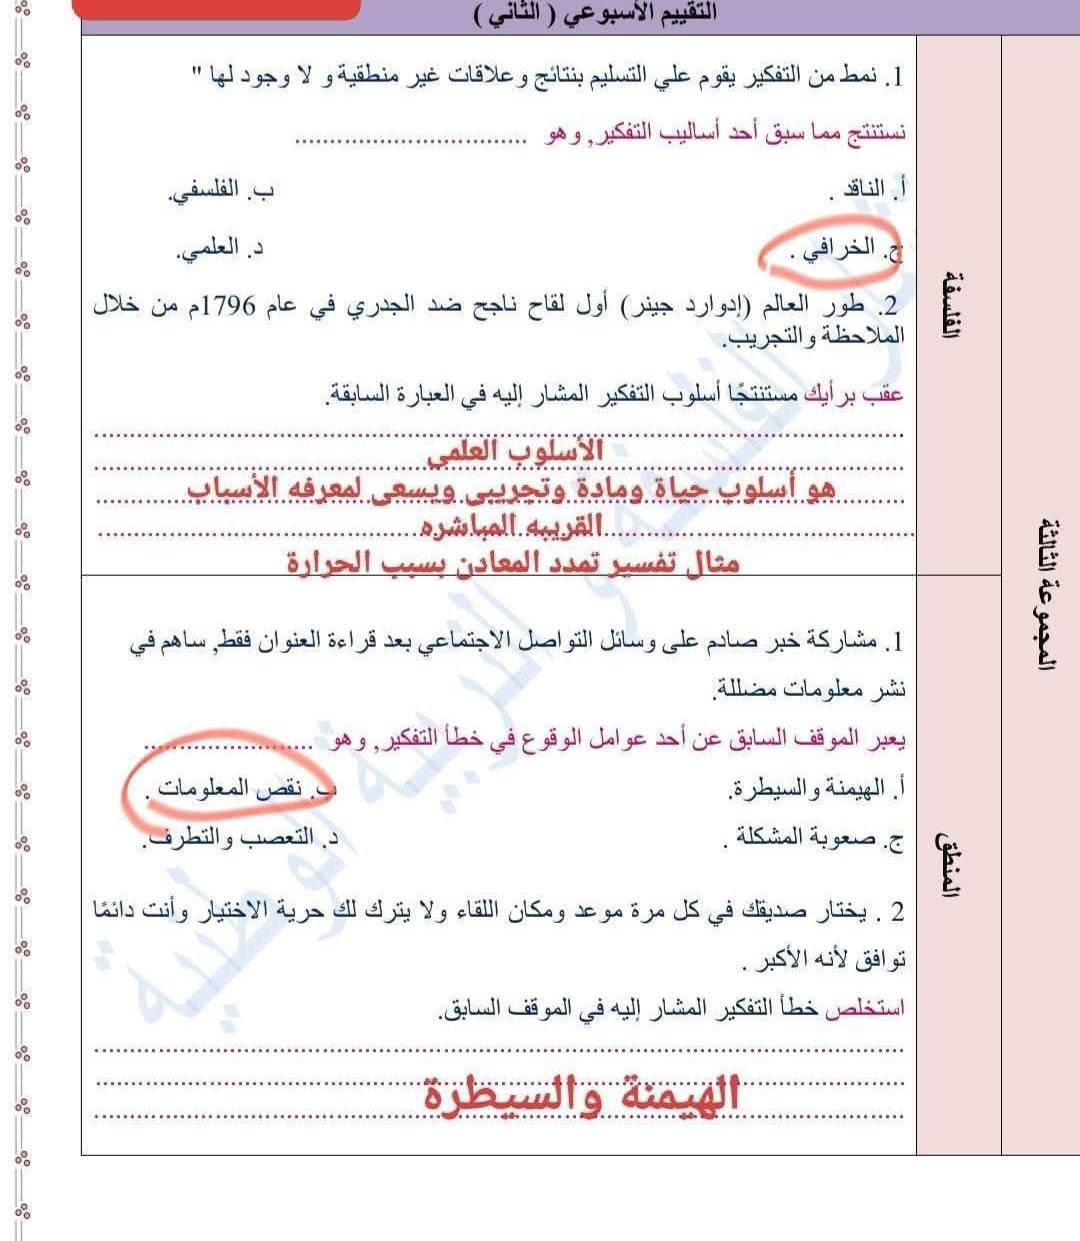 التقييم الأسبوعي ( الثاني )
المجموعة الثالثة
الفلسفة
1. نمط من التفكير يقوم علي التسليم بنتائج وعلاقات غير منطقية و لا وجود لها "
نستنتج مما سبق أحد أساليب التفكير, وهو ..............................
أ. الناقد .
ب. الفلسفي.
ج. الخرافي .
د. العلمي.
2. طور العالم (إدوارد جينر) أول لقاح ناجح ضد الجدري في عام 1796م من خلال
الملاحظة والتجريب.
عقب برأيك مستنتجًا أسلوب التفكير المشار إليه في العبارة السابقة.
الأسلوب العلمى
هو أسلوب حياة ومادة وتجريبى ويسعى لمعرفه الأسباب
القريبه المباشره
مثال تفسير تمدد المعادن بسبب الحرارة
المنطق
1. مشاركة خبر صادم على وسائل التواصل الاجتماعي بعد قراءة العنوان فقط, ساهم في
نشر معلومات مضللة.
يعبر الموقف السابق عن أحد عوامل الوقوع في خطأ التفكير, وهو ......................
أ. الهيمنة والسيطرة.
ب. نقص المعلومات .
ج. صعوبة المشكلة .
د. التعصب والتطرف.
2 . يختار صديقك في كل مرة موعد ومكان اللقاء ولا يترك لك حرية الاختيار وأنت دائمًا
توافق لأنه الأكبر .
استخلص خطأ التفكير المشار إليه في الموقف السابق.
الهيمنة والسيطرة